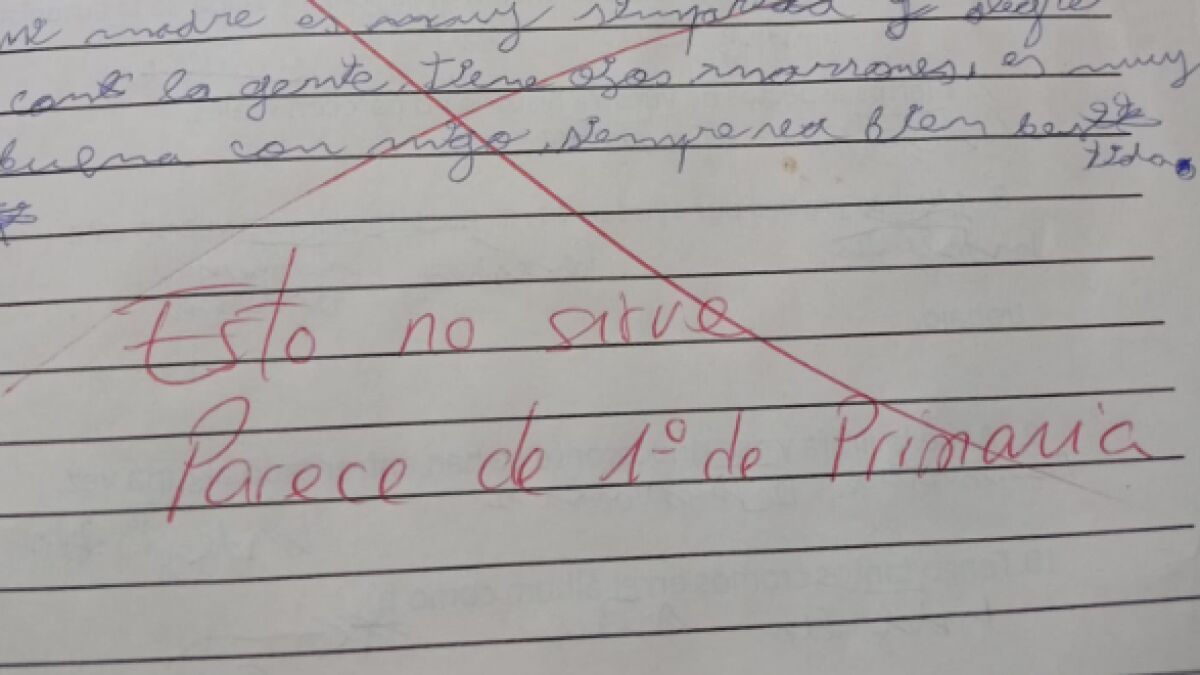 mi madre es muy simpatica y alegre
con la gente, tiene ojos marrones, es muy
buena con migo, siempre va bien
tida.
Esto no sirve
Parece de 1º de Primaria